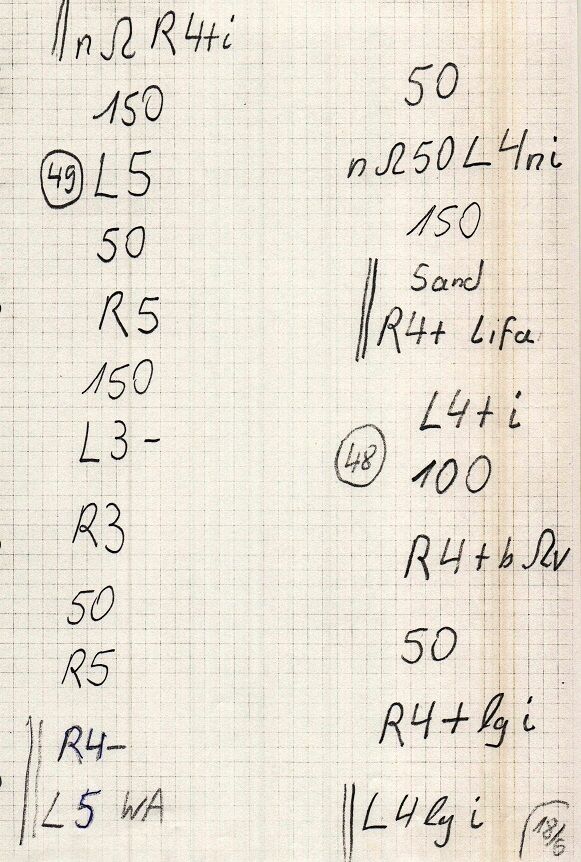 n Ω R4+i
150
49 L5
50
R5
150
L3-
R3
50
R5
R4-
L5 WA
50
nΩ50L4ni
150
Sand
R4+ Lifa
L4+i
48 100
R4+bΩv
50
R4+lgi
L4lgi
18/5